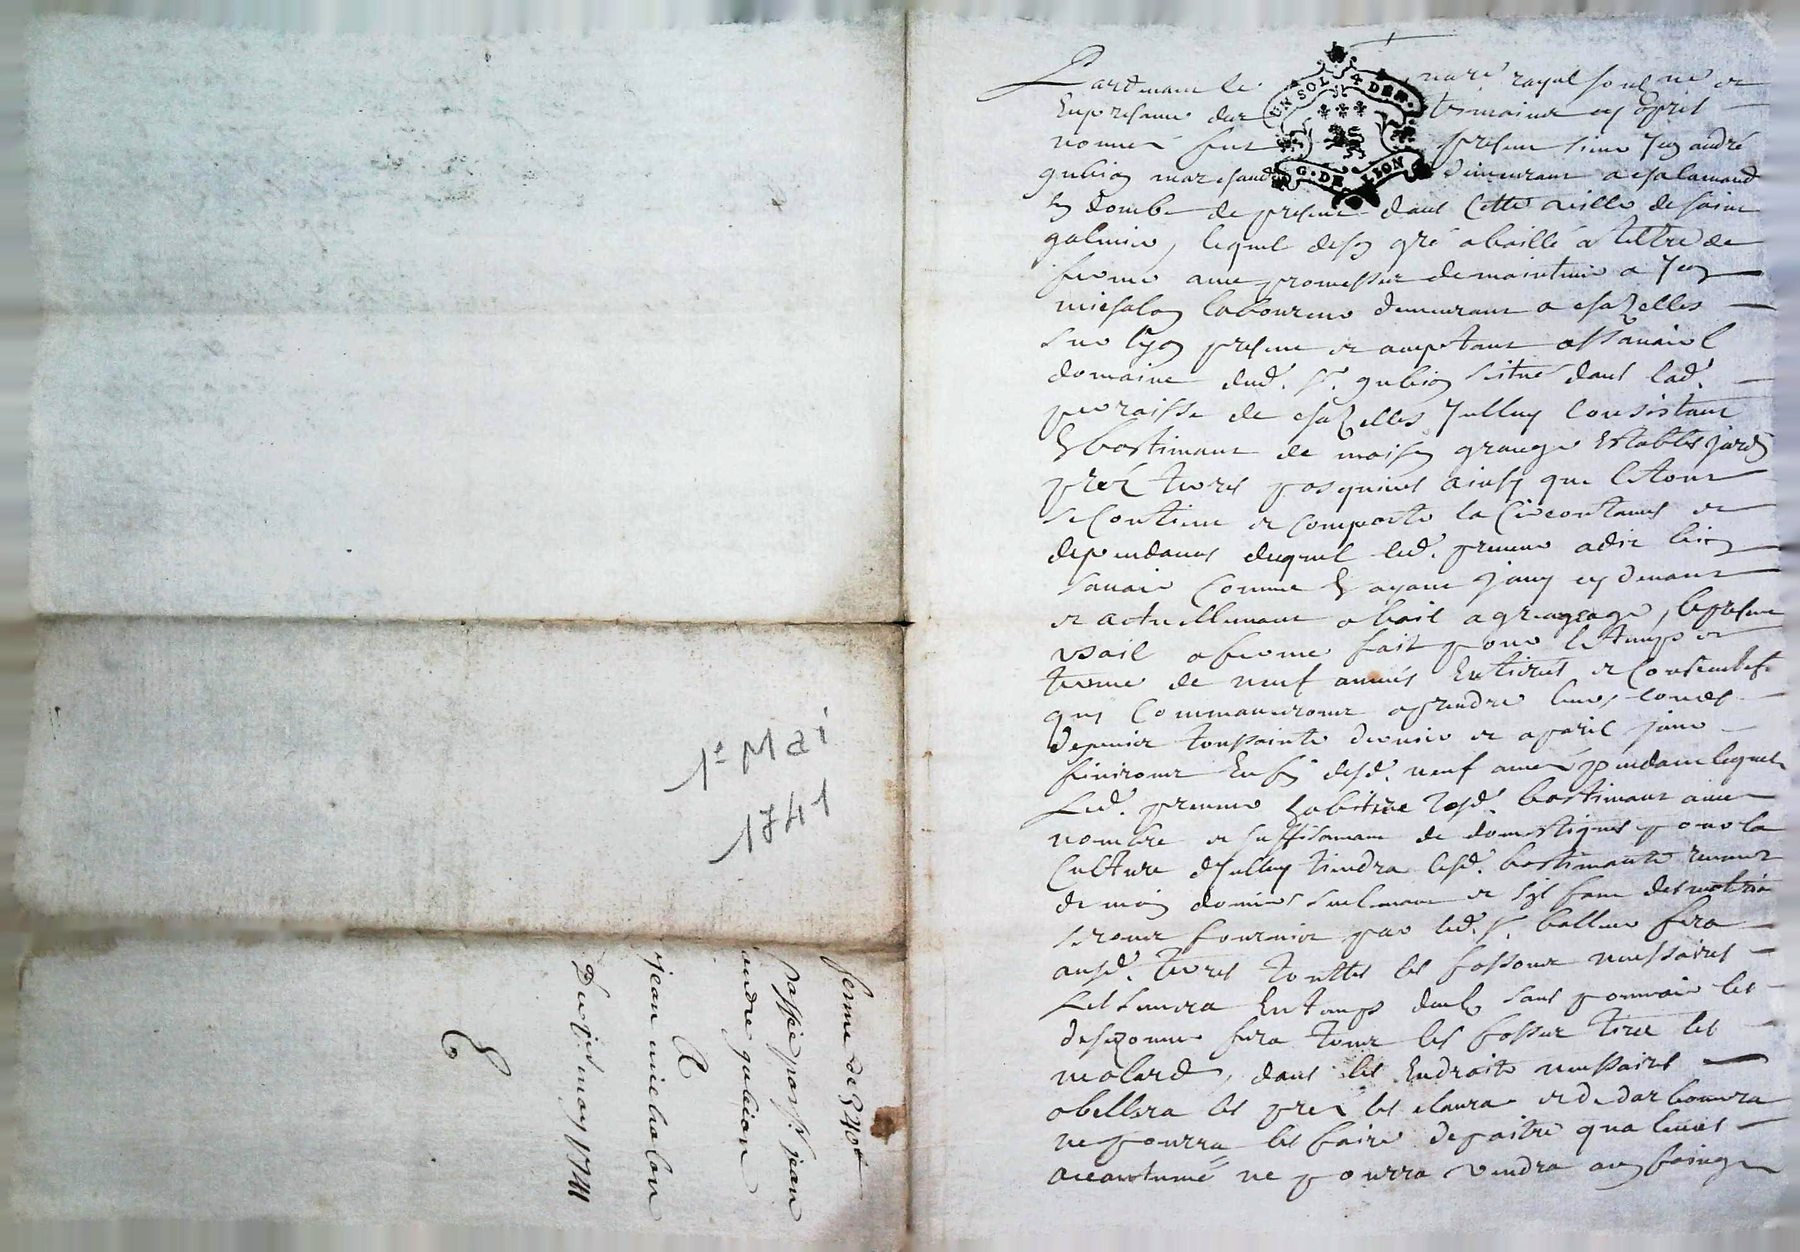 1e Mai
1741
ferme de 340lt
passée par sr jean
andre gubian
A
jean michalon
Du 1er may 1741
UN SOL 4 DEN.
G. DE LION
Pardevant le nore royal soubne et
En presance des temoins cy apres
nommés fut present sieur Jean andré
gubian marchand demeurant a chalamond
En dombe de present dans Cette ville de saint
galmier, lequel de son gré a baillé a tittre de
ferme avec promesse de maintenir a Jean
michalon laboureur demeurant a chazelles
sur lyon present et acceptant assavoir le
domaine dud. sr. gubian scitué dans lad.
parroisse de chazelles Jcelluy Consistant
En bastimant de maison grange Estables jardin
prez terres pasquiers ainsy que le tout
se Contient et Comporte ses Circontances et
dependances duquel led. preneur a dit bien
sçavoir Comme En ayant joui cy devant
et actuellement a bail a grangeage, le present
bail a ferme fait pour le temps et
terme de neuf années Entieres et Consecutives
qui Commanceront a prendre leurs cours
depuis toussaints dernier et a pareil jour
finiront En fin desd. neuf années pendant lesquels
Led. preneur habitera lesd. bastimant avec
nombre et suffisamant de domestiques pour la
Culture d'Jcelluy tiendra lesd. bastimants
de main d'œuvre seulement et s'il faut des materiaux
seront fournir par led. sr. balleur fera
ausd. terres touttes les fassons necessaires
Les semera En temps deub sans pouvoir les
dessezonner fera tous les fossez tirer les
molards, dans les Endroits necessaires
abellera les prez les claura et dedarbonnera
ne pourra les faire depaitre qu'a lieux
accoutumé ne pourra vendre aucun foing